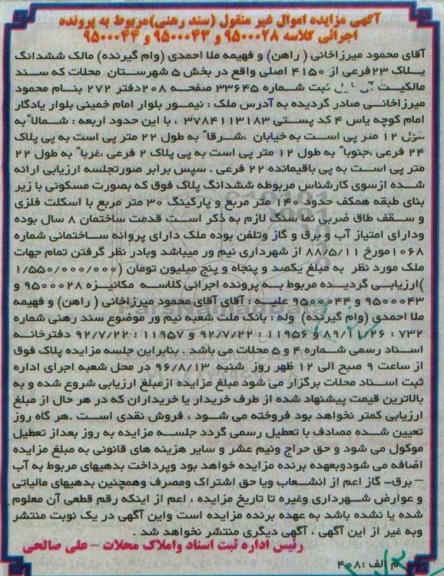 آگهی مزایده اموال غیر منقول (سند رهنی)مربوط به پرونده
اجرائی کلاسه ۹۵۰۰۰۲۸ و ۹۵۰۰۰۴۳ و ۹۵۰۰۰۴۴
آقای محمود میرزاخانی ( راهن) و فهیمه ملا احمدی (وام گیرنده) مالک ششدانگ
پلاک ۲۳فرعی از ۴۱۵۰ اصلی واقع در بخش ۵ شهرستان محلات که سند
مالکیت ثبت شماره ۳۳۶۴۵ صفحه ۲۰۸دفتر ۲۷۲ بنام محمود
میرزاخانی صادر گردیده به آدرس ملک : نیمور بلوار امام خمینی بلوار یادگار
امام کوچه یاس ۴ کد پستی ۳۷۸۴۱۱۳۱۸۳ ، با این حدود اربعه : شمالا" به
طول ۱۲ متر پی است به خیابان ،شرقا" به طول ۲۲ متر پی است به پی پلاک
۲۴ فرعی ،جنوبا" به طول ۱۲ متر پی است به پی پلاک ۲ فرعی ،غربا" به طول ۲۲
متر پی است به پی باقیمانده ۲۲ فرعی . سپس برابر صورتجلسه ارزیابی ارائه
شده ازسوی کارشناس مربوطه ششدانگ پلاک فوق که بصورت مسکونی با زیر
بنای طبقه همکف حدود ۱۴۰ متر مربع و پارکینگ ۳۰ متر مربع با اسکلت فلزی
و سقف طاق ضربی نما سنگ لازم به ذکر است قدمت ساختمان ۸ سال بوده
ودارای امتیاز آب و برق و گاز وتلفن بوده ملک دارای پروانه ساختمانی شماره
۱۰۶۸مورخ ۸۸/۵/۱۱ از شهرداری نیم ور میباشد وبادر نظر گرفتن تمام جهات
ملک مورد نظر به مبلغ یکصد و پنجاه و پنج میلیون تومان (۱/۵۵۰/۰۰۰/۰۰۰
)ارزیابی گردیده مربوط به پرونده اجرائی کلاسه مکانیزه ۹۵۰۰۰۲۸ و
۹۵۰۰۰۴۳ و ۹۵۰۰۰۴۴ علیه : آقای آقای محمود میرزاخانی ( راهن) و فهیمه
ملا احمدی (وام گیرنده) وله : بانک ملت شعبه نیم ور موضوع سند رهنی شماره
۷۳۲ : ۸۹/۱۱/۲۶ و ۱۱۹۵۶ : ۹۲/۷/۲۲ و ۱۱۹۵۷ : ۹۲/۷/۲۲ دفترخانه
اسناد رسمی شماره ۴ و ۵ محلات می باشد . بنابراین جلسه مزایده پلاک فوق
از ساعت ۹ صبح الی ۱۲ ظهر روز شنبه ۹۶/۸/۱۳ در محل شعبه اجرای اداره
ثبت اسناد محلات برگزار می شود مبلغ مزایده ازمبلغ ارزیابی شروع شده و به
بالاترین قیمت پیشنهاد شده از طرف خریدار یا خریداران که در هر حال از مبلغ
ارزیابی کمتر نخواهد بود فروخته می شود ، فروش نقدی است .هر گاه روز
تعیین شده مصادف با تعطیل رسمی گردد جلسه مزایده به روز بعداز تعطیل
موکول می شود و حق حراج ونیم عشر و سایر هزینه های قانونی به مبلغ مزایده
اضافه می شودوبعهده برنده مزایده خواهد بود وپرداخت بدهیهای مربوط به آب
– برق– گاز اعم از انشعاب ویا حق اشتراک ومصرف وهمچنین بدهیهای مالیاتی
و عوارض شهرداری وغیره تا تاریخ مزایده ، اعم از اینکه رقم قطعی آن معلوم
شده یا نشده باشد به عهده برنده مزایده است واین آگهی در یک نوبت منتشر
وبه غیر از این آگهی ، آگهی دیگری منتشر نخواهد شد .
رئیس اداره ثبت اسناد واملاک محلات – علی صالحی
م الف :۴۰۸